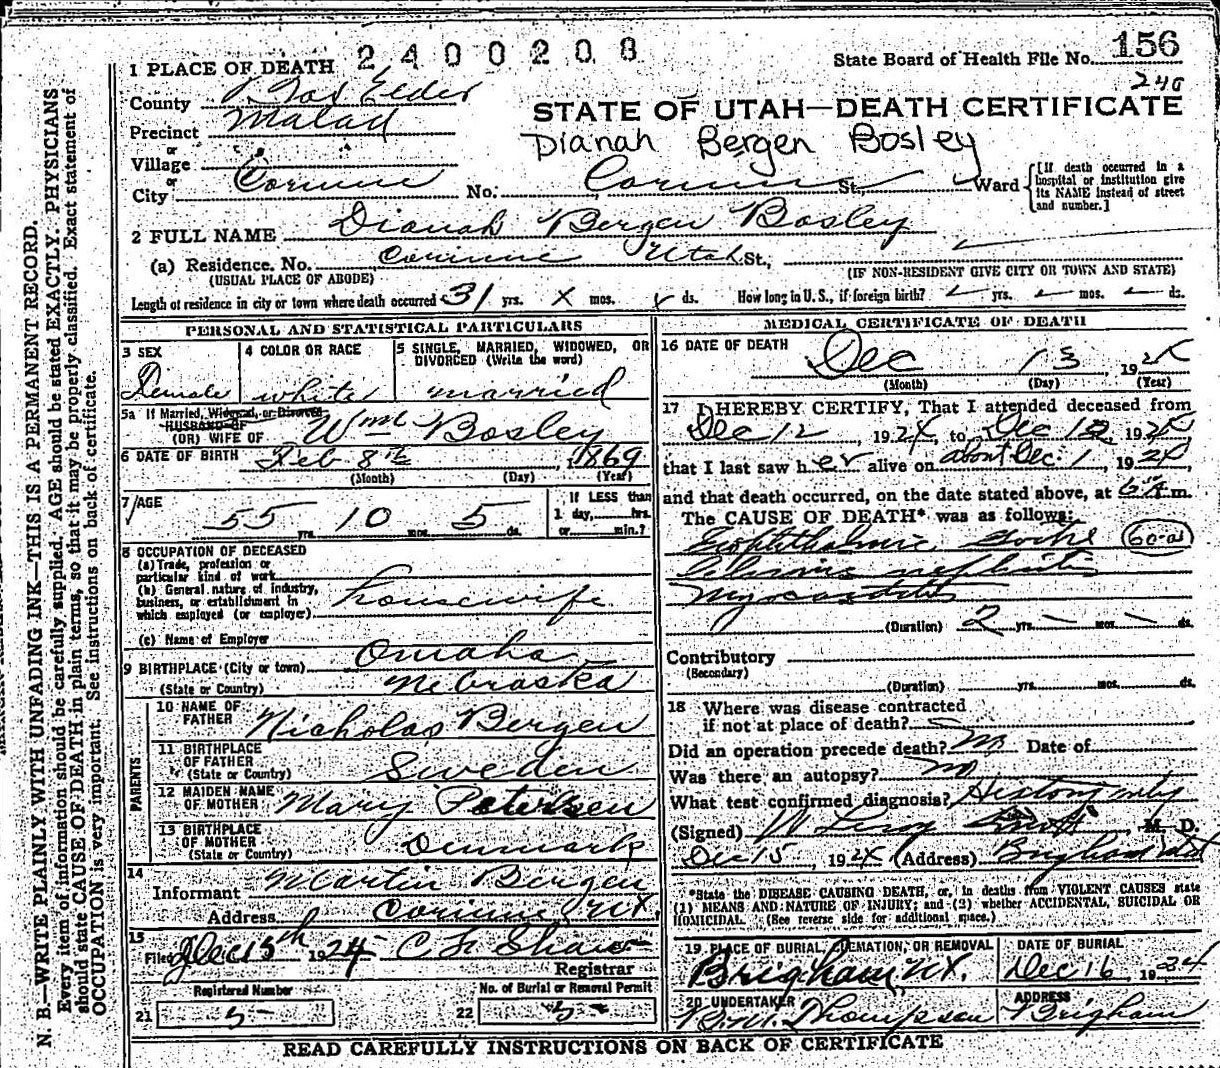 2400208
State Board of Health File No. 156
240
1 PLACE OF DEATH
County Box Elder
STATE OF UTAH—DEATH CERTIFICATE
Precinct Malad
Dianah Bergen Bosley
or
Village
or
City Corinne No. Corinne St., Ward
[If death occurred in a hospital or institution give its NAME instead of street and number.]
2 FULL NAME Dianah Bergen Bosley
(a) Residence. No. Corinne Utah St.,
(USUAL PLACE OF ABODE) (IF NON-RESIDENT GIVE CITY OR TOWN AND STATE)
Length of residence in city or town where death occurred 31 yrs. x mos. ds. How long in U. S., if foreign birth? yrs. mos. ds.
PERSONAL AND STATISTICAL PARTICULARS
3 SEX
Female
4 COLOR OR RACE
white
5 SINGLE, MARRIED, WIDOWED, OR DIVORCED (Write the word)
married
5a If Married, Widowed, or Divorced
HUSBAND OF
(OR) WIFE OF Wm Bosley
6 DATE OF BIRTH Feb 8th, 1869
(Month) (Day) (Year)
7 AGE
55 yrs. 10 mos. 5 ds.
If LESS than
1 day, hrs.
or min.?
8 OCCUPATION OF DECEASED
(a) Trade, profession or
particular kind of work
(b) General nature of industry,
business, or establishment in
which employed (or employer) housewife
(c) Name of Employer
9 BIRTHPLACE (City or town) Omaha
(State or Country) Nebraska
PARENTS
10 NAME OF FATHER Nicholas Bergen
11 BIRTHPLACE OF FATHER
(State or Country) Sweden
12 MAIDEN NAME OF MOTHER Mary Petersen
13 BIRTHPLACE OF MOTHER
(State or Country) Denmark
14
Informant Martin Bergen
Address Corinne, Ut.
15
Filed Dec 15th 1924 Registrar
Registered Number
21 5
No. of Burial or Removal Permit
22 5
MEDICAL CERTIFICATE OF DEATH
16 DATE OF DEATH
Dec 13 1924
(Month) (Day) (Year)
17 I HEREBY CERTIFY, That I attended deceased from
Dec 12, 1924, to Dec 12 1924
that I last saw her alive on about Dec. 1, 1924
and that death occurred, on the date stated above, at m.
The CAUSE OF DEATH* was as follows:
Exophthalmic Goitre
60-a
Chronic nephritis
Myocarditis
(Duration) 2 yrs. — mos. — ds.
Contributory
(Secondary)
(Duration) yrs. mos. ds.
18 Where was disease contracted
if not at place of death?
Did an operation precede death? no Date of
Was there an autopsy? no
What test confirmed diagnosis? History only
(Signed) M. D.
Dec 15, 1924 (Address) Brigham Utah
*State the DISEASE CAUSING DEATH, or, in deaths from VIOLENT CAUSES state
(1) MEANS AND NATURE OF INJURY; and (2) whether ACCIDENTAL, SUICIDAL OR
HOMICIDAL. (See reverse side for additional space.)
19 PLACE OF BURIAL, CREMATION, OR REMOVAL
Brigham, Ut.
DATE OF BURIAL
Dec 16 1924
20 UNDERTAKER
Thompson
ADDRESS
Brigham
READ CAREFULLY INSTRUCTIONS ON BACK OF CERTIFICATE
N. B.—WRITE PLAINLY WITH UNFADING INK—THIS IS A PERMANENT RECORD.
Every item of information should be carefully supplied. AGE should be stated EXACTLY. PHYSICIANS
should state CAUSE OF DEATH in plain terms, so that it may be properly classified. Exact statement of
OCCUPATION is very important. See instructions on back of certificate.